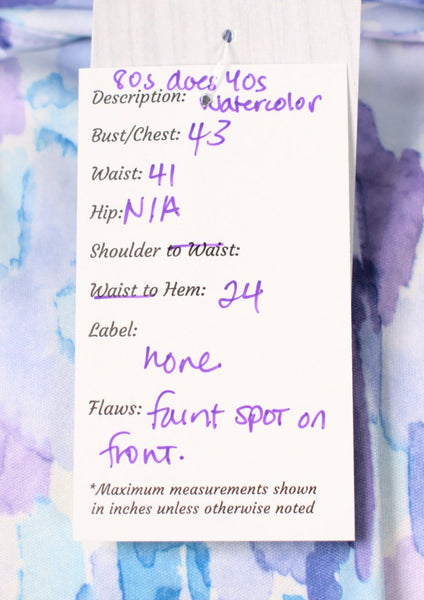 80s does 40s
Description: watercolor
Bust/Chest: 43
Waist: 41
Hip: N/A
Shoulder to Waist:
Waist to Hem: 24
Label:
none
Flaws: faint spot on
front.
*Maximum measurements shown
in inches unless otherwise noted